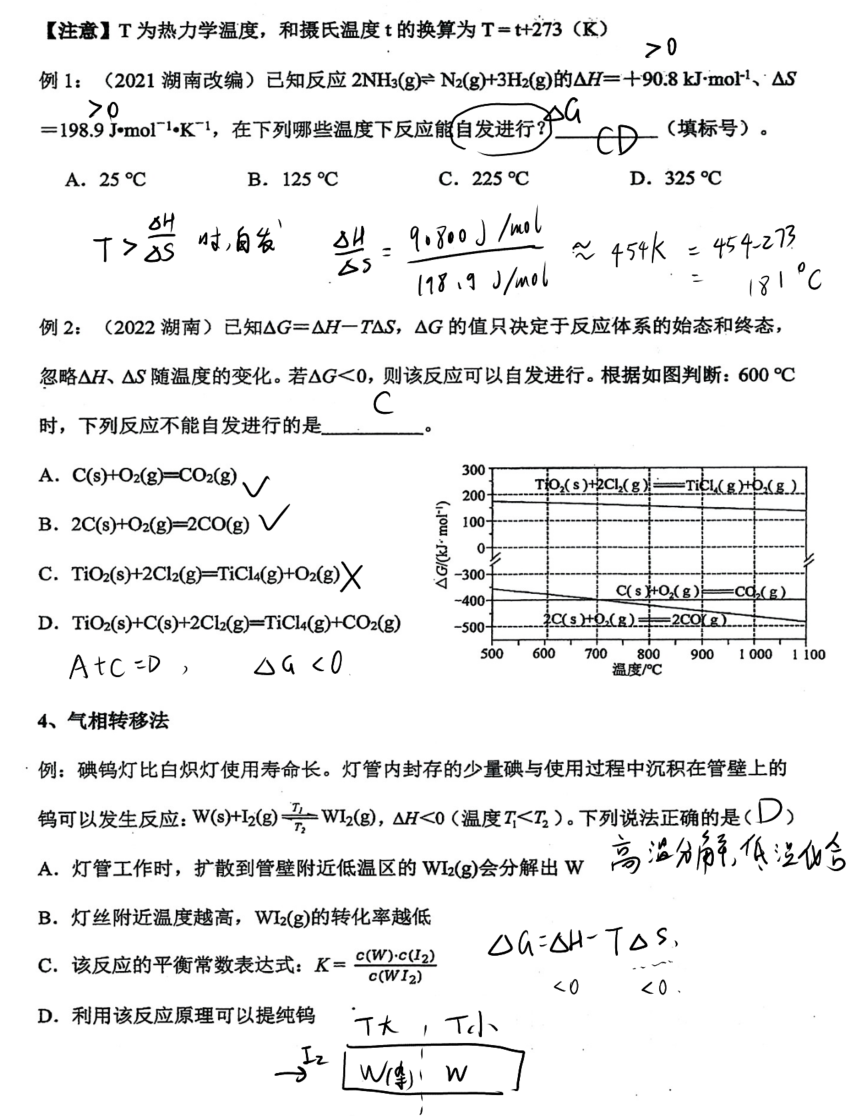 【注意】T 为热力学温度，和摄氏温度 t 的换算为 T = t+273（K）
>0
例 1：（2021 湖南改编）已知反应 2NH₃(g)⇌ N₂(g)+3H₂(g)的ΔH=＋90.8 kJ·mol⁻¹、ΔS
>0
ΔG
=198.9 J•mol⁻¹•K⁻¹，在下列哪些温度下反应能自发进行？ CD （填标号）。
A．25 ℃ B．125 ℃ C．225 ℃ D．325 ℃
T > ΔH/ΔS 时,自发 ΔH/ΔS = 90800 J/mol / 198.9 J/mol ≈ 454k = 454-273
= 181 °C
例 2：（2022 湖南）已知ΔG=ΔH－TΔS，ΔG 的值只决定于反应体系的始态和终态，
忽略ΔH、ΔS 随温度的变化。若ΔG＜0，则该反应可以自发进行。根据如图判断：600 ℃
时，下列反应不能自发进行的是 C 。
A．C(s)+O₂(g)═CO₂(g) ✓
B．2C(s)+O₂(g)═2CO(g) ✓
C．TiO₂(s)+2Cl₂(g)═TiCl₄(g)+O₂(g) X
D．TiO₂(s)+C(s)+2Cl₂(g)═TiCl₄(g)+CO₂(g)
A+C=D , ΔG <0
ΔG/(kJ·mol⁻¹)
300
200
100
0
-300
-400
-500
TiO₂(s)+2Cl₂(g)═TiCl₄(g)+O₂(g)
C(s)+O₂(g)═CO₂(g)
2C(s)+O₂(g)═2CO(g)
500 600 700 800 900 1 000 1 100
温度/℃
4、气相转移法
例：碘钨灯比白炽灯使用寿命长。灯管内封存的少量碘与使用过程中沉积在管壁上的
钨可以发生反应：W(s)+I₂(g) ⇌ WI₂(g)，ΔH＜0（温度T₁<T₂）。下列说法正确的是( D )
T₁
T₂
A．灯管工作时，扩散到管壁附近低温区的 WI₂(g)会分解出 W
高温分解,低温化合
B．灯丝附近温度越高，WI₂(g)的转化率越低
ΔG=ΔH-TΔS,
<0 <0 .
C．该反应的平衡常数表达式：K= c(W)·c(I₂)/c(WI₂)
D．利用该反应原理可以提纯钨
T大 , T小
→I₂ W W